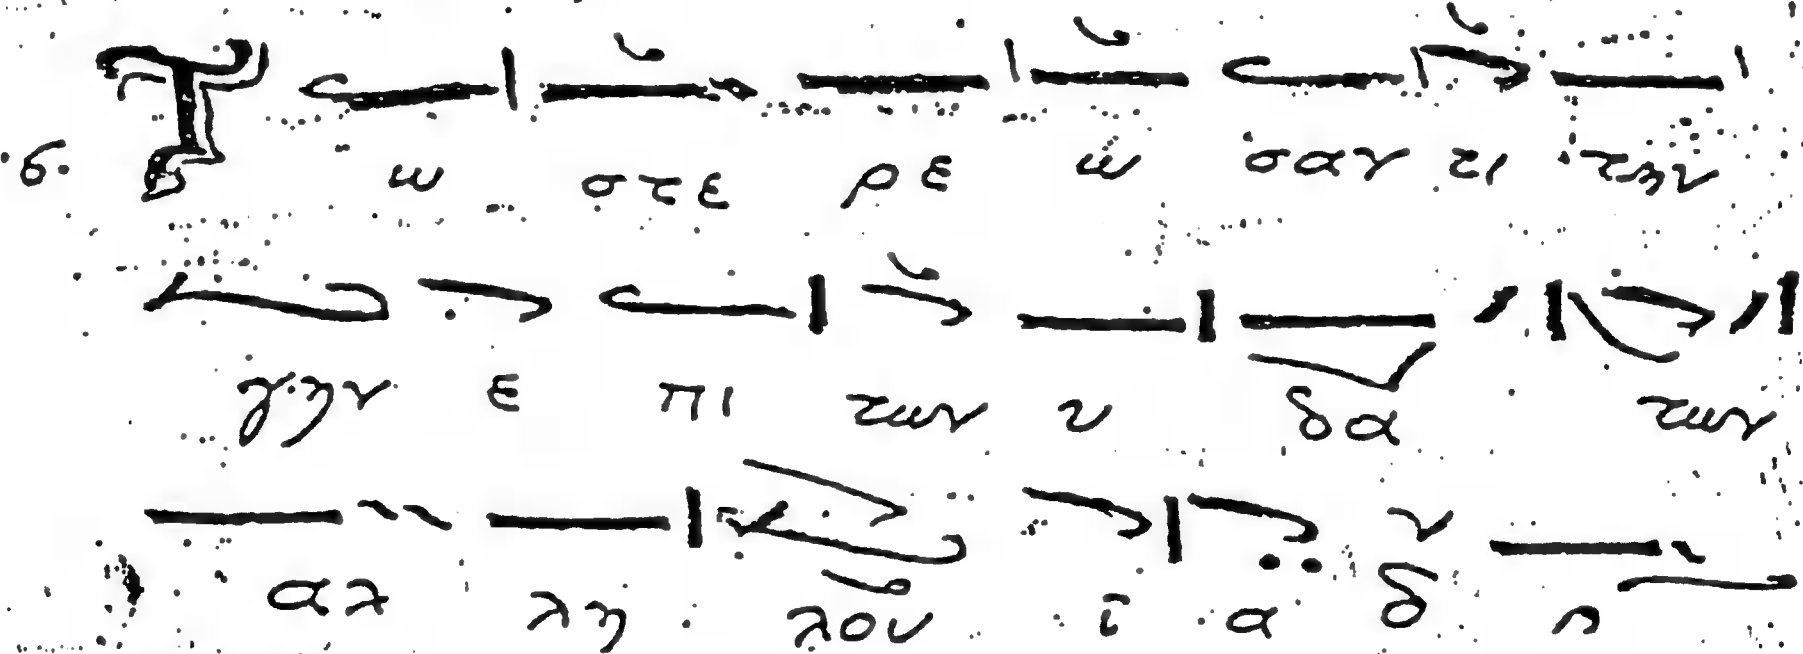 ς. Τ ω στε ρε ω σαν τι την
γην ε πι των υ δα των
αλ λη λου ϊ α